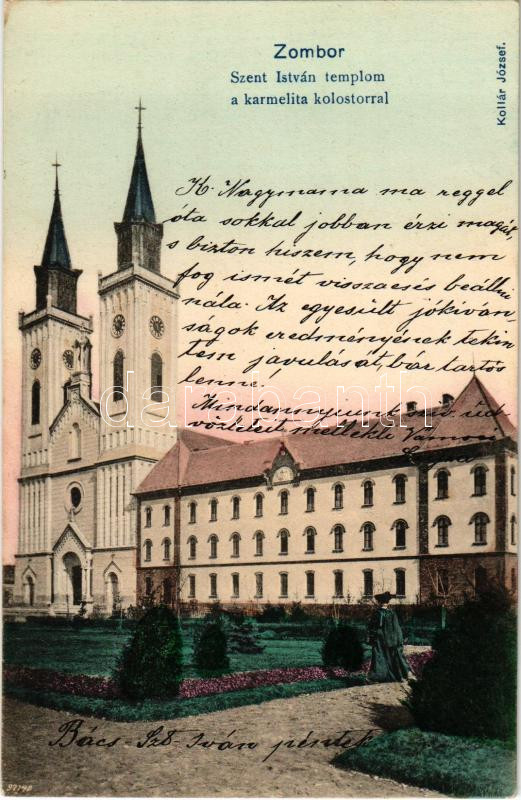 Zombor
Szent István templom
a karmelita kolostorral
Kollár József.
K. Nagymama ma reggel
óta sokkal jobban érzi magát,
s bizton hiszem, hogy nem
fog ismét visszaesés beállni
nála. Az egyesült jókíván
ságok eredményének tekin
tem javulását, bár tartós
lenne!
Mindannyiunk szív. üd
vözleteit mellékli Vamosi
darabanth
Bács-Szt-Iván péntek
97140